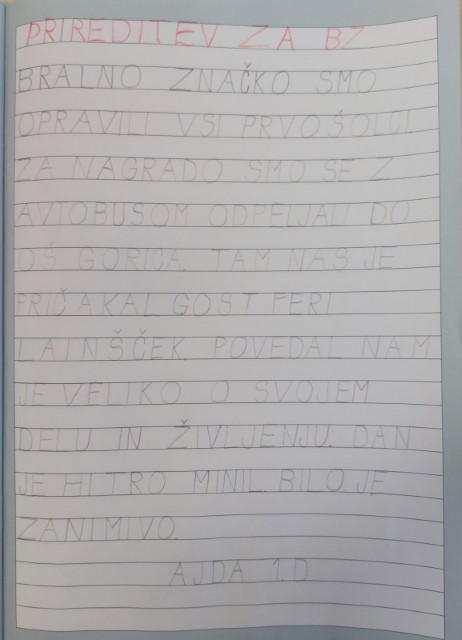 PRIREDITEV ZA BZ
BRALNO ZNAČKO SMO
OPRAVILI VSI PRVOŠOLCI.
ZA NAGRADO SMO SE Z
AVTOBUSOM ODPELJALI DO
OŠ GORICA. TAM NAS JE
PRIČAKAL GOST FERI
LAINŠČEK. POVEDAL NAM
JE VELIKO O SVOJEM
DELU IN ŽIVLJENJU. DAN
JE HITRO MINIL. BILO JE
ZANIMIVO.
AJDA 1.D